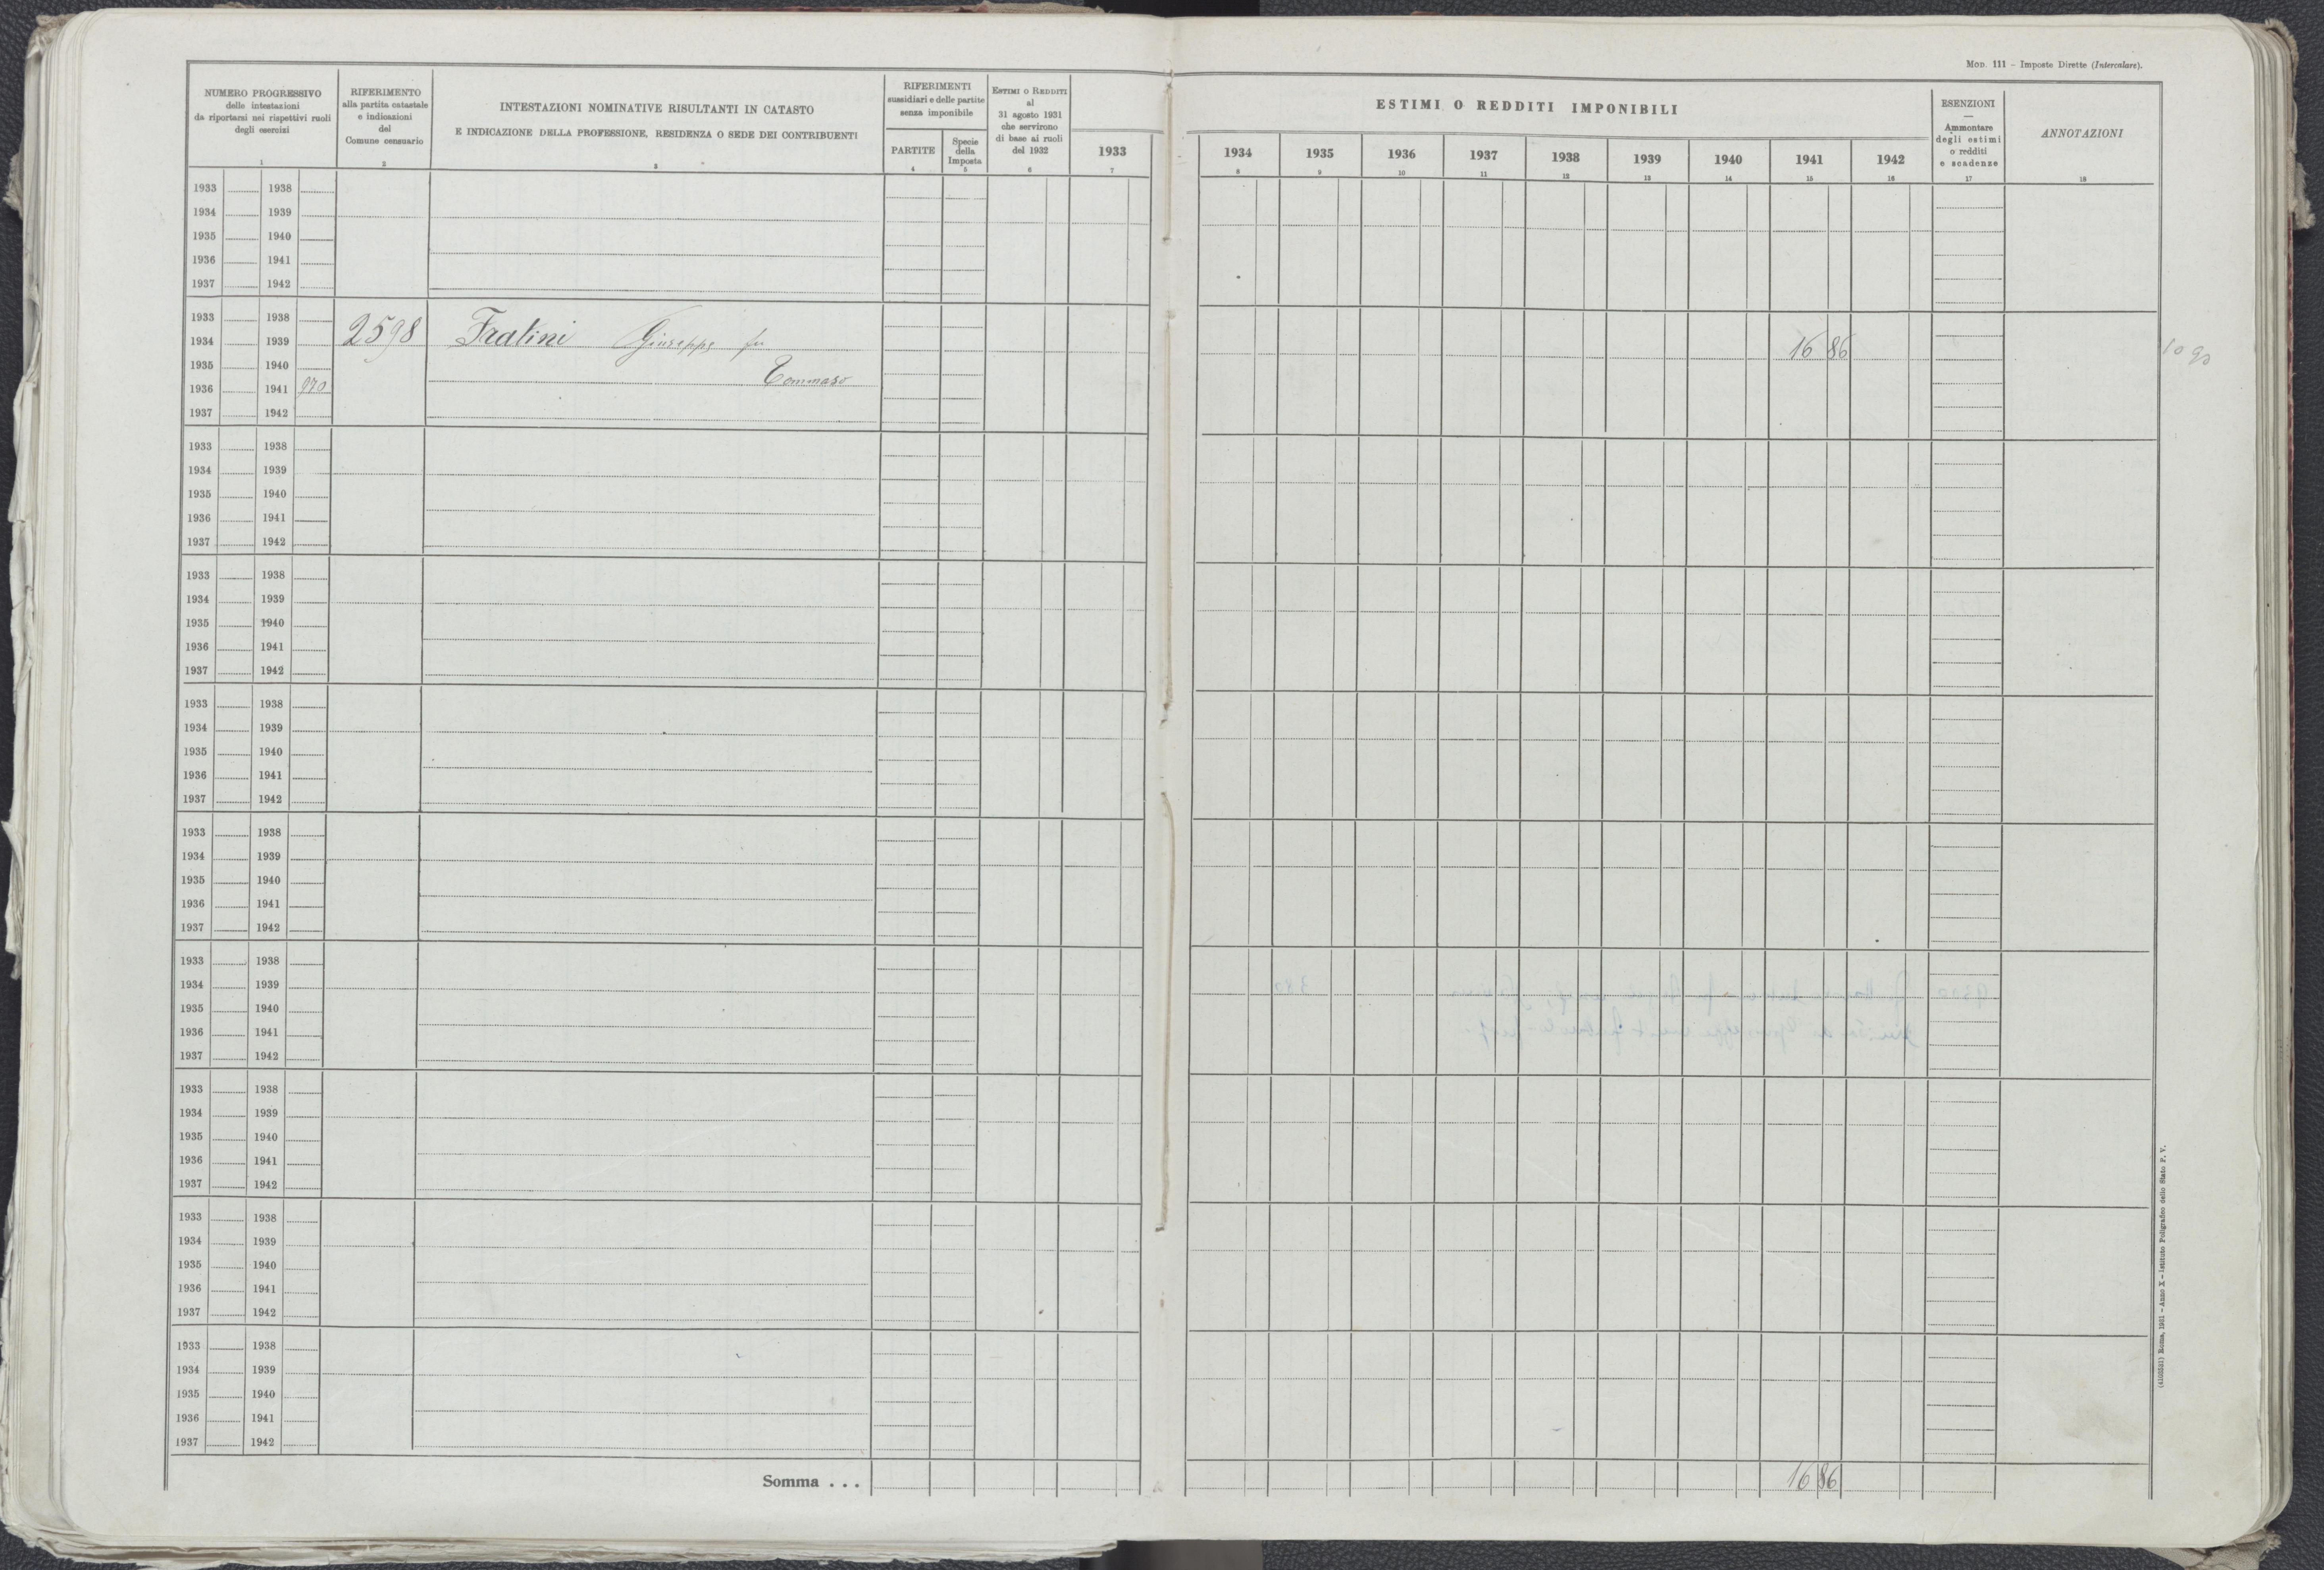 MOD. 111 – Imposte Dirette (Intercalare).
NUMERO PROGRESSIVO
delle intestazioni
da riportarsi nei rispettivi ruoli
degli esercizi
1
RIFERIMENTO
alla partita catastale
e indicazioni
del
Comune censuario
2
INTESTAZIONI NOMINATIVE RISULTANTI IN CATASTO
E INDICAZIONE DELLA PROFESSIONE, RESIDENZA O SEDE DEI CONTRIBUENTI
3
RIFERIMENTI
sussidiari e delle partite
senza imponibile
PARTITE
4
Specie
della
Imposta
5
ESTIMI O REDDITI
al
31 agosto 1931
che servirono
di base ai ruoli
del 1932
6
1933
7
ESTIMI O REDDITI IMPONIBILI
1934 1935 1936 1937 1938 1939 1940 1941 1942
8 9 10 11 12 13 14 15 16
ESENZIONI
—
Ammontare
degli estimi
o redditi
e scadenze
17
ANNOTAZIONI
18
1933 1938
1934 1939
1935 1940
1936 1941
1937 1942
1933 1938
1934 1939 2598 Fratini Giuseppe fu 16 86
1935 1940
1936 1941 970 Tommaso
1937 1942
1933 1938
1934 1939
1935 1940
1936 1941
1937 1942
1933 1938
1934 1939
1935 1940
1936 1941
1937 1942
1933 1938
1934 1939
1935 1940
1936 1941
1937 1942
1933 1938
1934 1939
1935 1940
1936 1941
1937 1942
1933 1938
1934 1939
1935 1940
1936 1941
1937 1942
1933 1938
1934 1939
1935 1940
1936 1941
1937 1942
1933 1938
1934 1939
1935 1940
1936 1941
1937 1942
1933 1938
1934 1939
1935 1940
1936 1941
1937 1942
Somma . . . 16 86